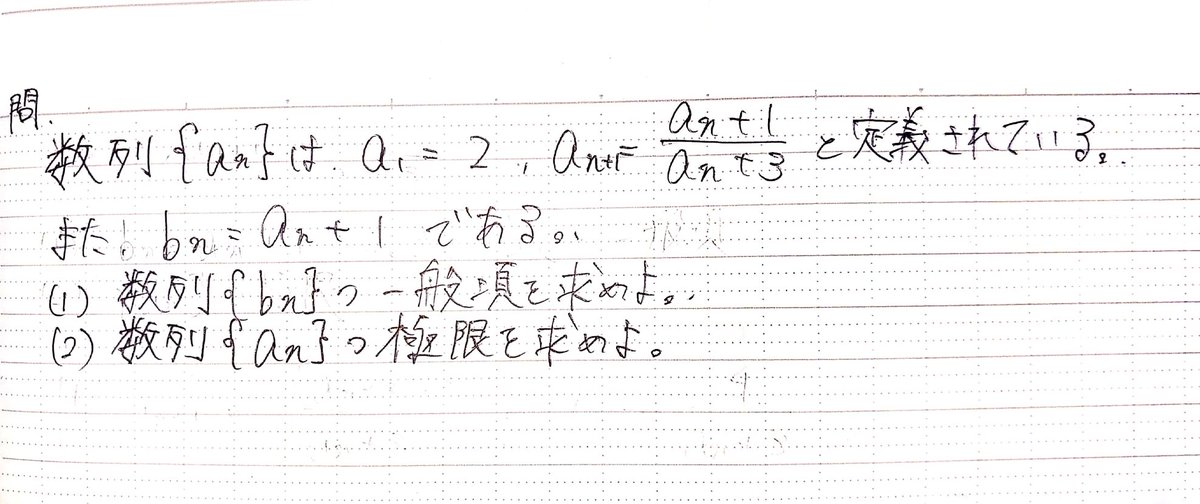 問.
数列{an}は a₁ = 2 , an+1 = (an+1)/(an+3) と定義されている。
また bn = an + 1 である。
(1) 数列{bn}の一般項を求めよ。
(2) 数列{an}の極限を求めよ。